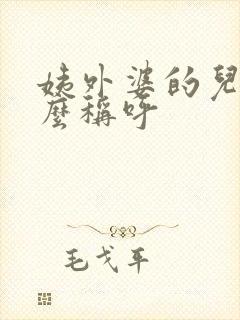 姨外婆的兒
麼稱呼
毛戈平